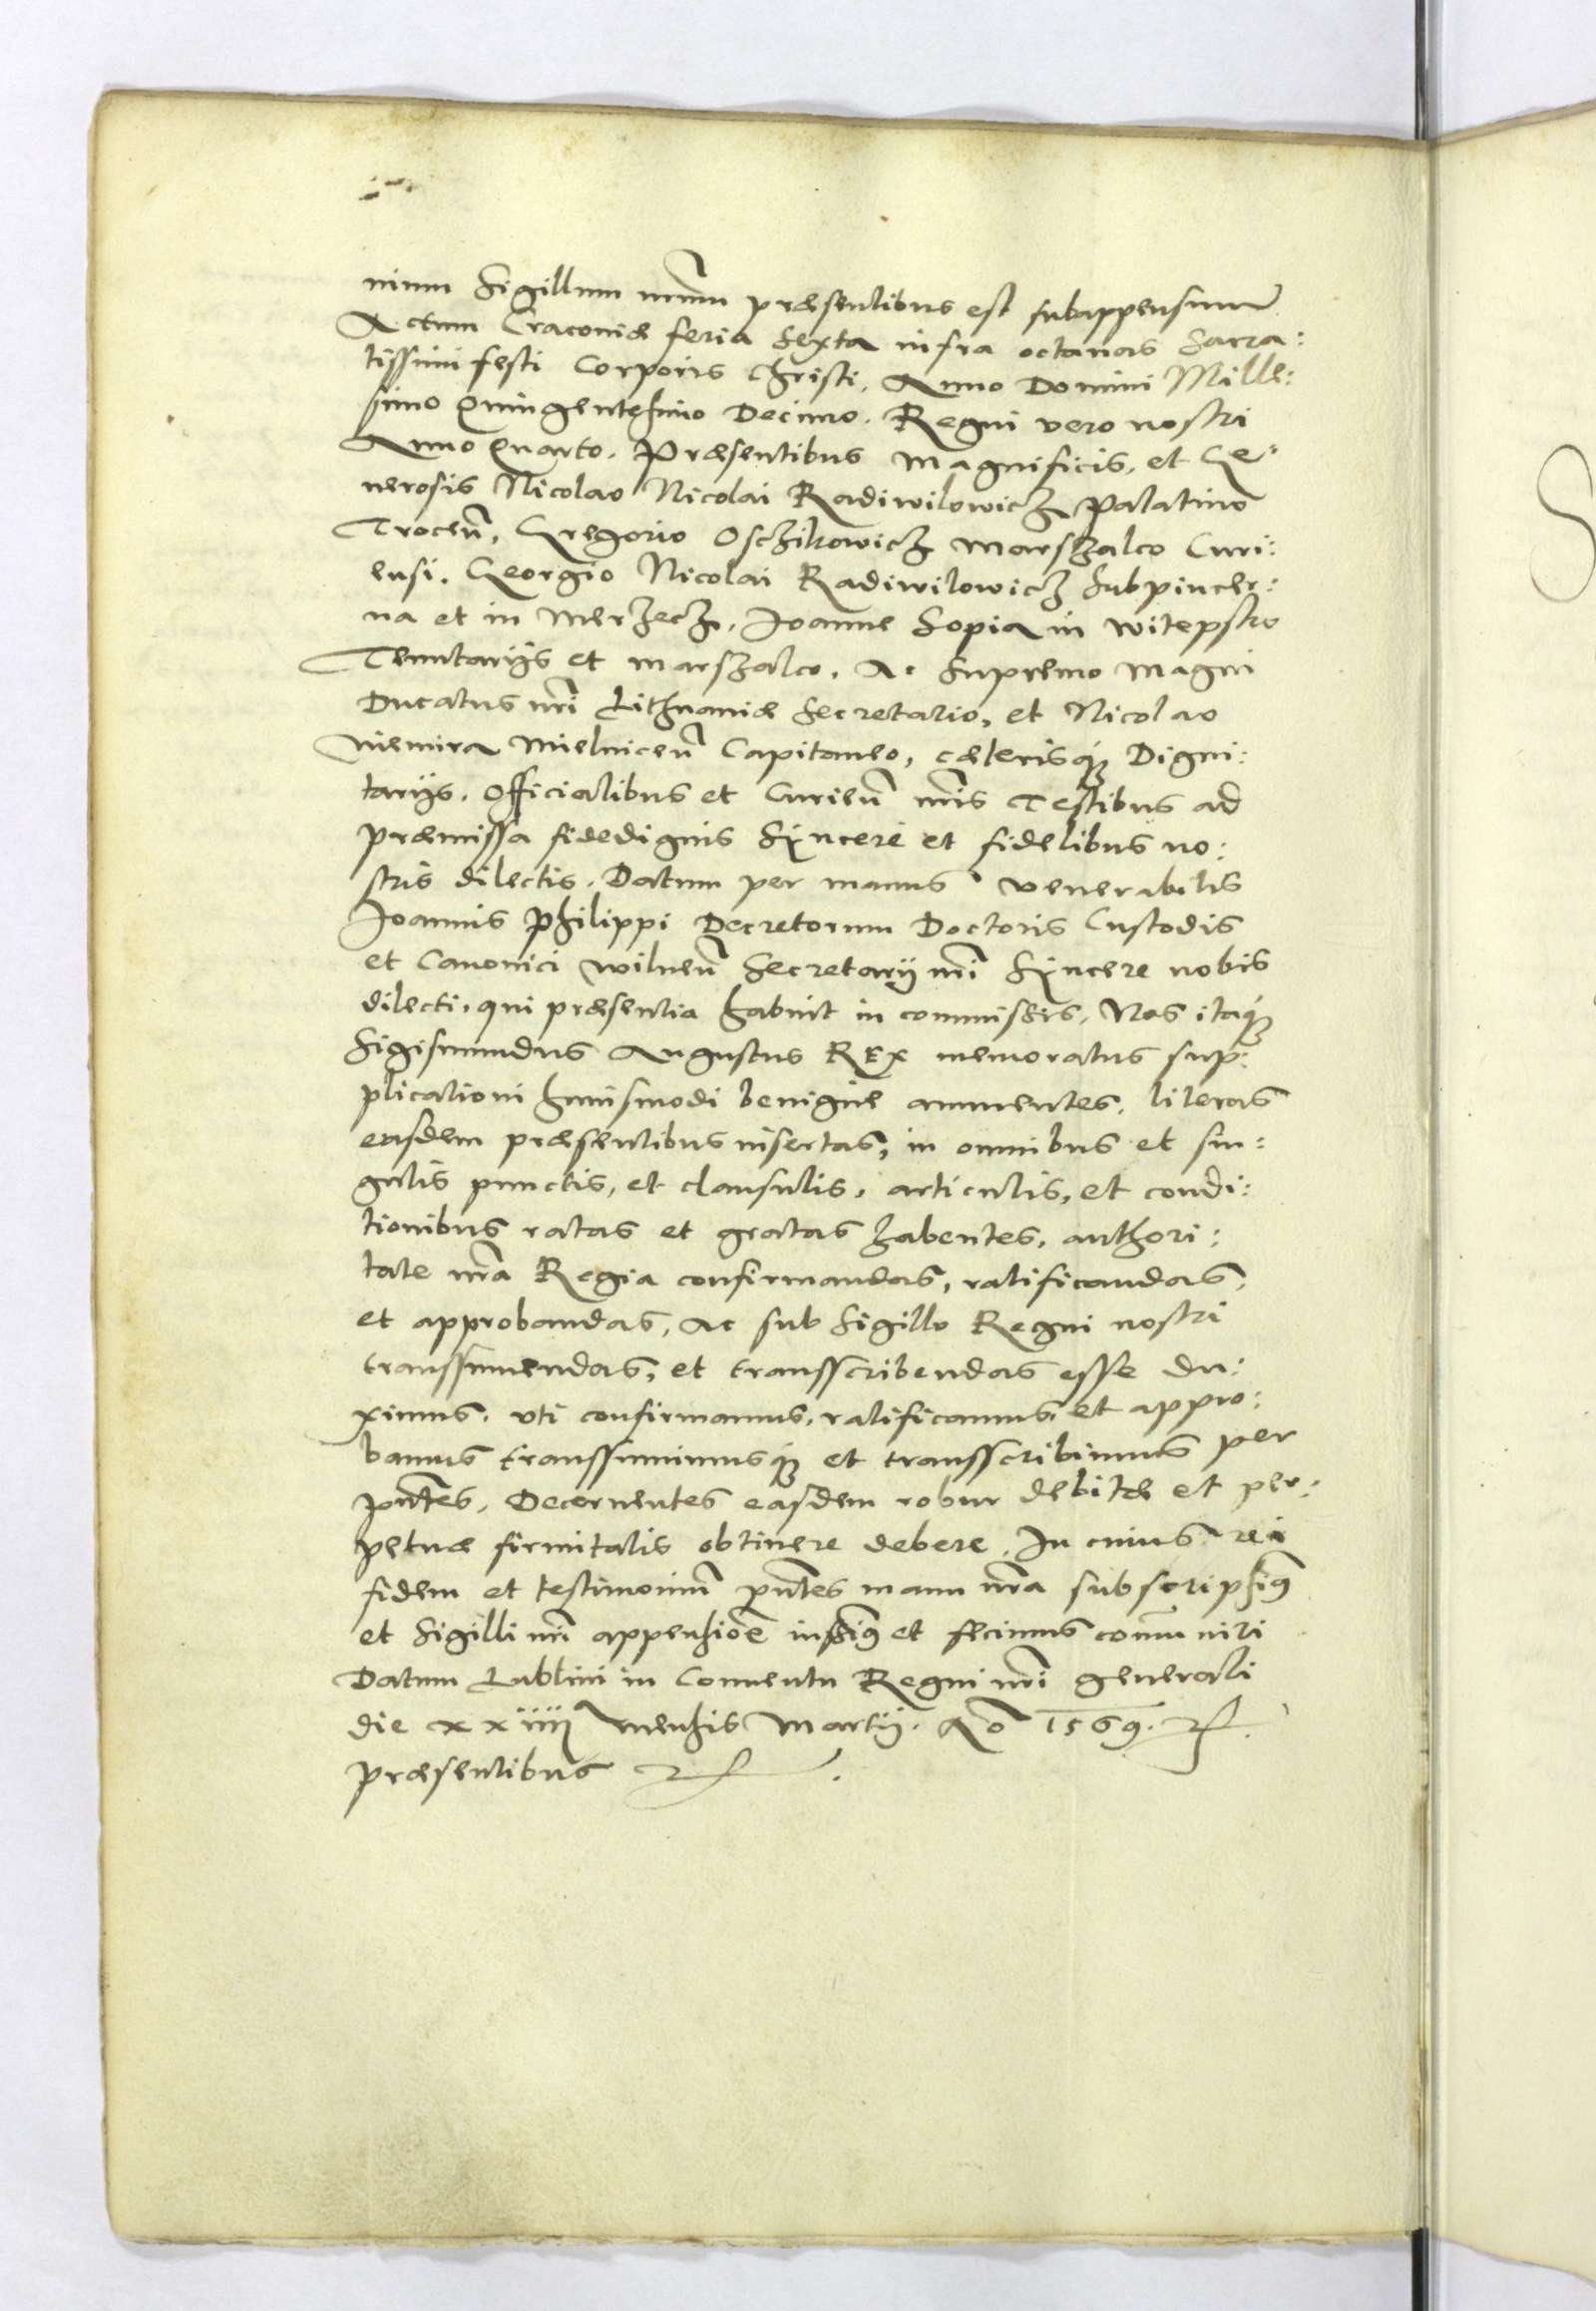 nium Sigillum nr̃um præsentibus est subappensum
Actum Cracoviæ feria sexta infra octavas Sacra:
tissimi festi Corporis Christi, Anno Domini Mille:
simo Quingentesimo Decimo. Regni vero nostri
Anno Quarto. Præsentibus Magnificis, et Ge:
nerosis Nicolao Nicolai Radiwilowicz Palatino
Trocen̄, Gregorio Osczikowicz Marszalco Curi:
ensi. Georgio Nicolai Radiwilowicz Subpincer:
na et in Merzecz, Joanne Sopia in Witepsko
Tenutarijs et Marszalco, Ac Supremo Magni
Ducatus nr̃i Lithuaniæ Secretario, et Nicolao
Niemira Mielnicen̄ Capitaneo, cæterisq́ꝫ Digni:
tarijs, Officialibus et Curien̄ nr̃is Testibus ad
præmissa fidedignis Syncere et fidelibus no:
stris dilectis. Datum per manus venerabilis
Joannis Philippi Decretorum Doctoris Custodis
et Canonici Wilnen̄ Secretarij nr̃i Syncere nobis
dilecti, qui præsentia habuit in commissis, Nos itaq́ꝫ
Sigismundus Augustus REx memoratus sup:
plicationi huiusmodi benigne annuentes, literas
easdem præsentibus insertas, in omnibus et sin:
gulis punctis, et clausulis, articulis, et condi:
tionibus ratas et gratas habentes, authori:
tate nr̃a Regia confirmandas, ratificandas,
et approbandas, Ac sub Sigillo Regni nostri
transsumendas, et transscribendas esse du:
ximus, uti confirmamus, ratificamus, et appro:
bamus transsumimusq́ꝫ et transscribimus per
pn̄tes, Decernentes easdem robur debitæ et per:
petuæ firmitatis obtinere debere. In cuius rei
fidem et testimoniū pn̄tes manu nr̃a subscripsimꝰ
et Sigilli nr̃i appensioe iussimꝰ et fecimus com̄uniri
Datum Lublini in Conventu Regni nr̃i generali
die xxiiij mensis Martij. Ao 1569.
præsentibus